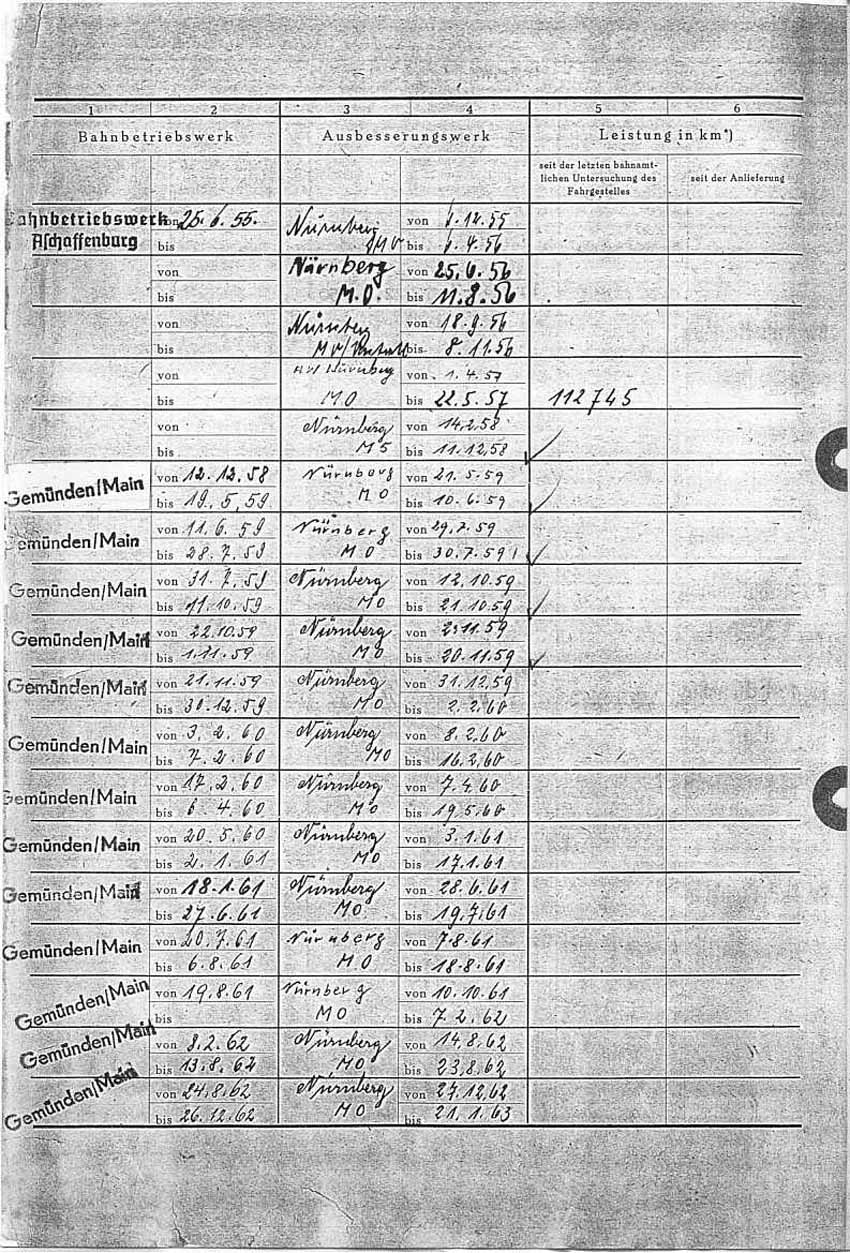 1 2 3 4 5 6
Bahnbetriebswerk Ausbesserungswerk Leistung in km*)
seit der letzten bahnamt-
lichen Untersuchung des
Fahrgestelles
seit der Anlieferung
Bahnbetriebswerk von 25.6.55. Nürnberg von 1.12.55
Aschaffenburg bis bis 6.4.56
von Nürnberg von 25.6.56
bis M.O. bis 11.8.56
von Nürnberg von 18.9.56
bis bis 8.11.56
von AW Nürnberg von 1.4.57
bis M.O bis 22.5.57 112745
von Nürnberg von 14.2.58
bis bis 11.12.58
Gemünden/Main von 12.12.58 Nürnberg von 21.5.59
bis 19.5.59 M O bis 10.6.59
Gemünden/Main von 11.6.59 Nürnberg von 29.7.59
bis 28.7.59 M O bis 30.7.59
Gemünden/Main von 31.7.59 Nürnberg von 12.10.59
bis 11.10.59 M O bis 21.10.59
Gemünden/Main von 22.10.59 Nürnberg von 2.11.59
bis 1.11.59 M O bis 20.11.59
Gemünden/Main von 21.11.59 Nürnberg von 31.12.59
bis 30.12.59 M O bis 2.2.60
Gemünden/Main von 3.2.60 Nürnberg von 8.2.60
bis 7.2.60 M O bis 16.2.60
Gemünden/Main von 17.2.60 Nürnberg von 7.4.60
bis 6.4.60 M O bis 19.5.60
Gemünden/Main von 20.5.60 Nürnberg von 3.1.61
bis 2.1.61 M O bis 17.1.61
Gemünden/Main von 18.1.61 Nürnberg von 28.6.61
bis 27.6.61 M O bis 19.7.61
Gemünden/Main von 20.7.61 Nürnberg von 7.8.61
bis 6.8.61 M.O bis 18.8.61
Gemünden/Main von 19.8.61 Nürnberg von 10.10.61
bis M O bis 7.2.62
Gemünden/Main von 8.2.62 Nürnberg von 14.8.62
bis 13.8.62 M O bis 23.8.62
Gemünden/Main von 24.8.62 Nürnberg von 27.12.62
bis 26.12.62 M O bis 21.1.63